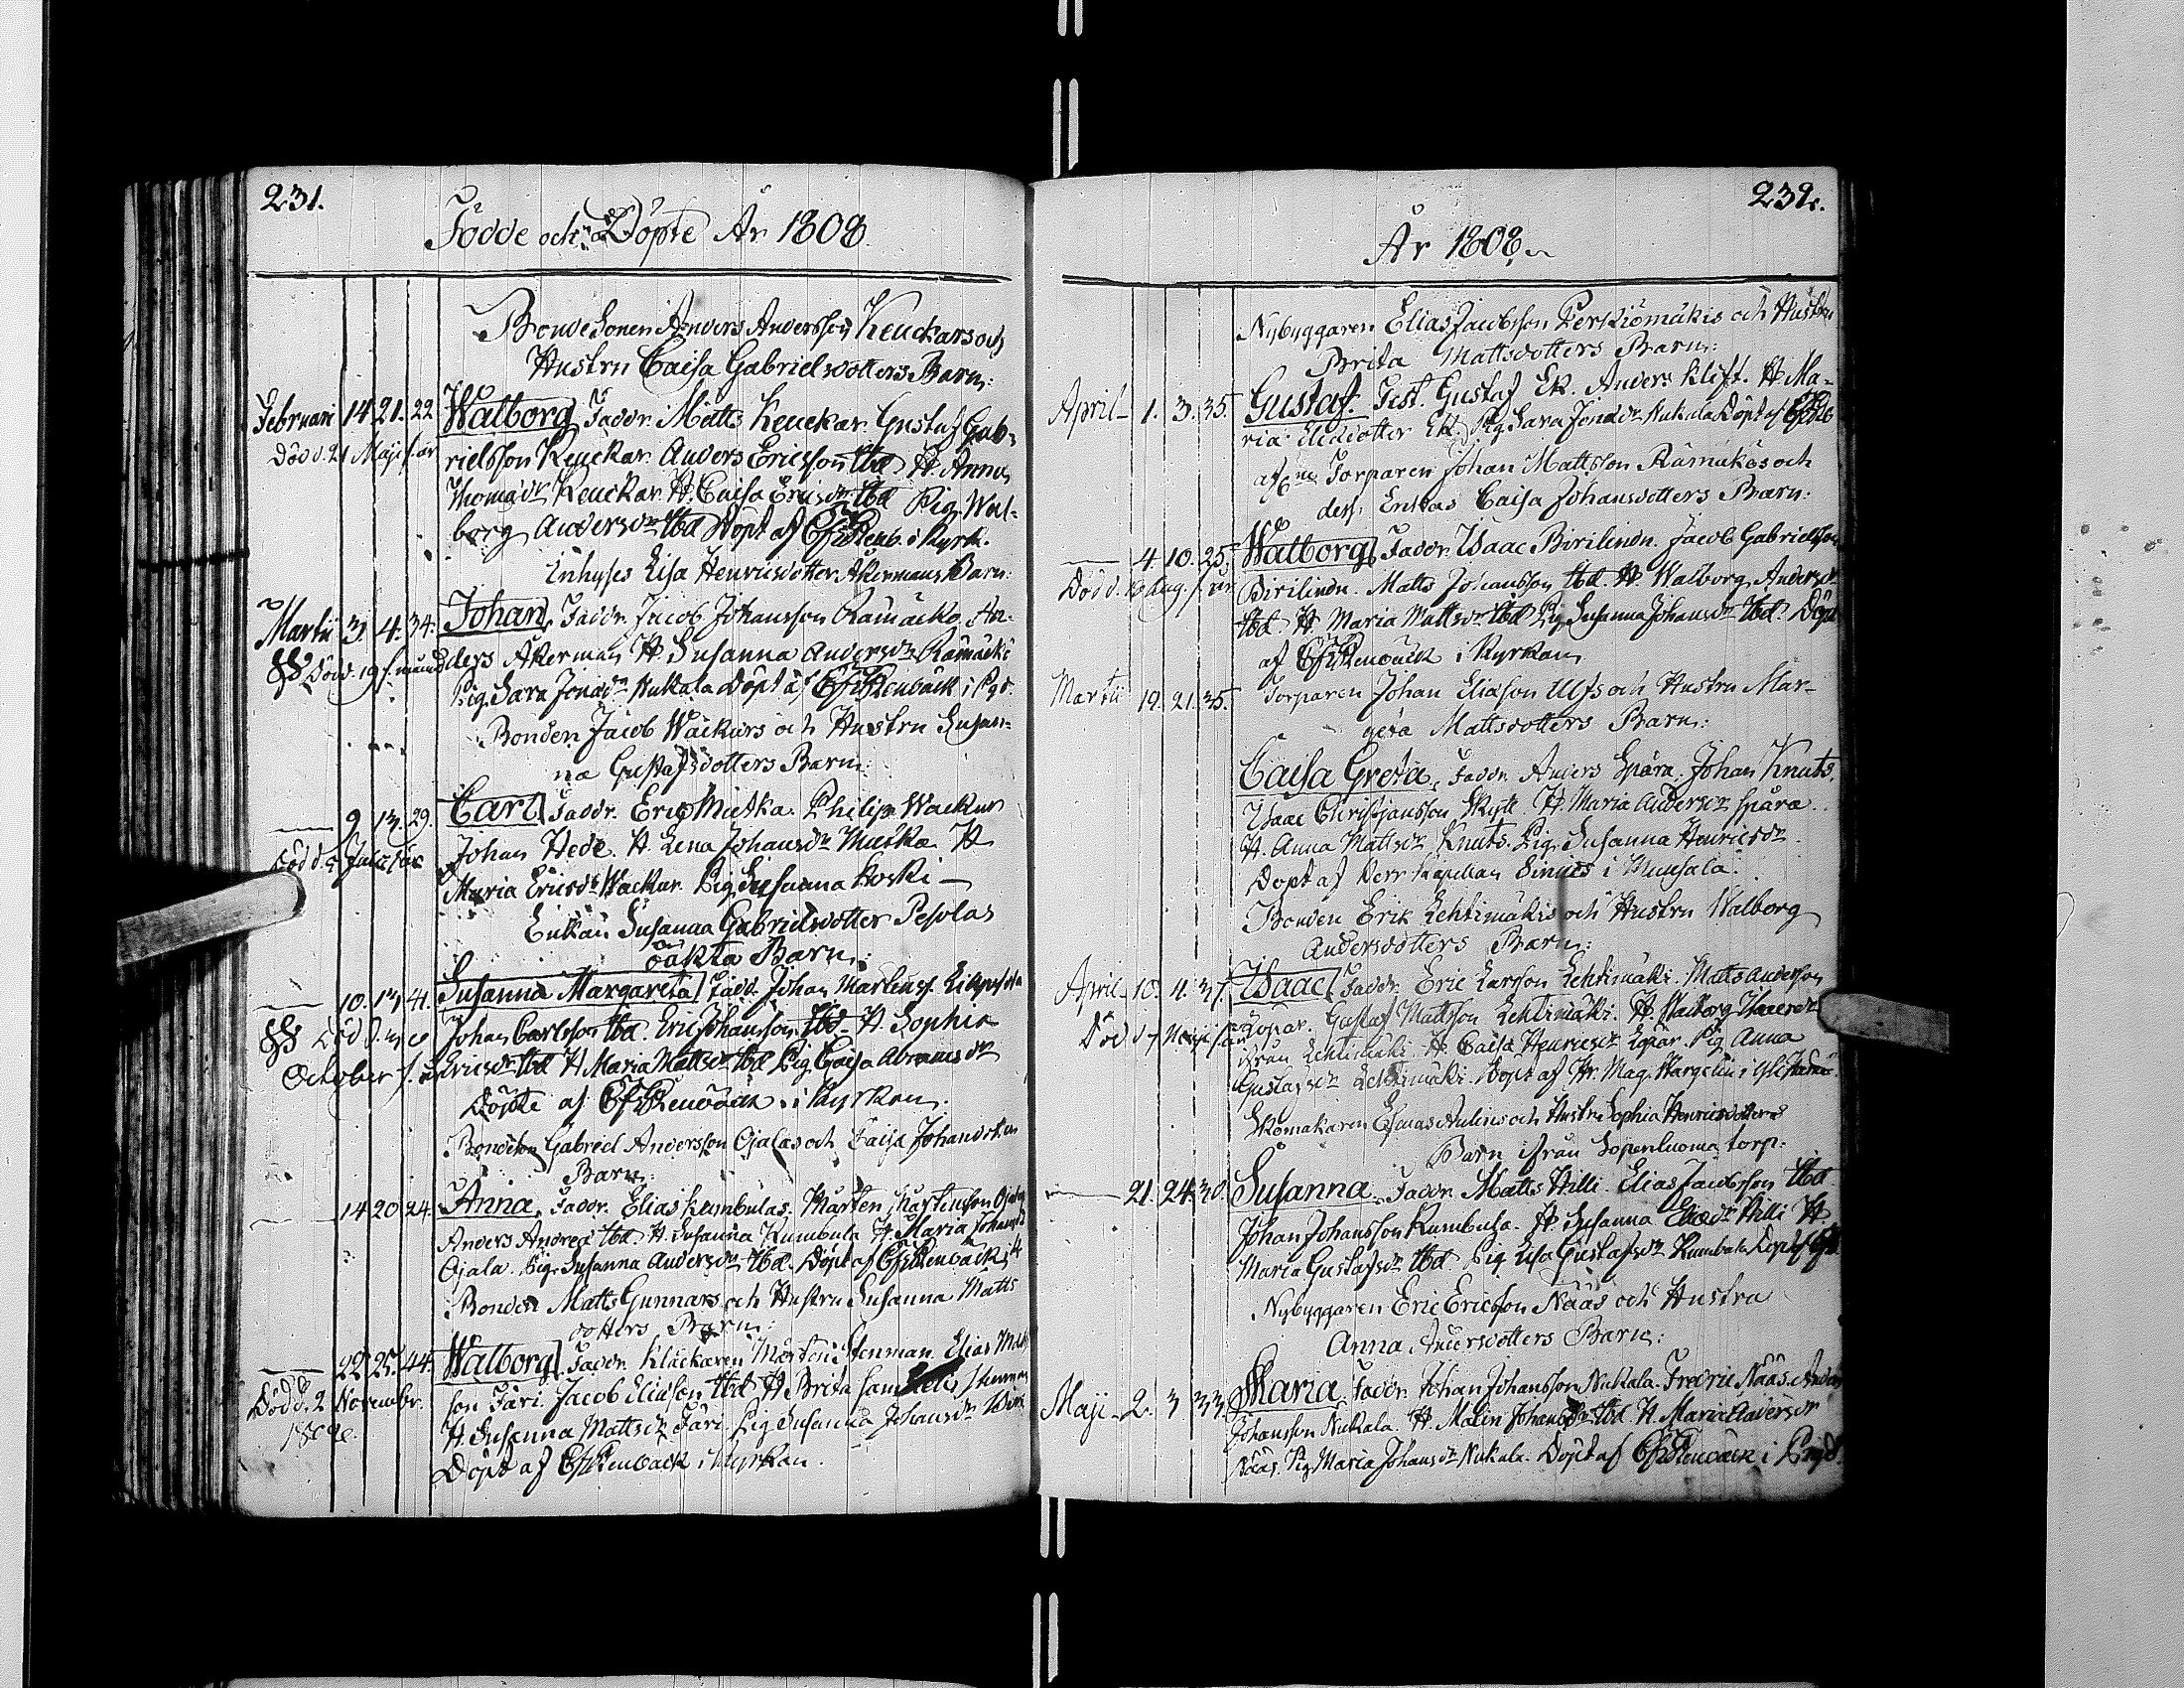 231.
Födde och Döpte År 1808.
BondeSonen Anders Andersson Keuckars och
Hustru Caisa Gabrielsdotters Barn:
Februari 14 21. 22 Walborg, Faddr. Matts Keuckar. Gustaf Gab=
Död d. 21 Maji s. år rielsson Keuckar. Anders Ericsson Ibd. H. Anna
Thomædr Keuckar. H. Caisa Ericsdr Ibd Pig. Wal-
borg Andersdr Ibd Döpt af i Kyrk.
Inhyses Lisa Henricsdotter Åkermans Barn:
Martii 3. 4. 34. Johan, Faddr. Jacob Johansson Rämäcko, An-
Död d. 19 s. månd ders Åkerman H. Susanna Andersdr Rämäcki
Pig. Sara Jonædr Nukala Döpt af i Pgd.
Bonden Jacob Wäckars och Hustru Susan=
na Gustafsdotters Barn:
9. 13. 29. Carl, Faddr. Eric Mietka. Philip Wackur
Johan Hede. H. Lena Johansdr Mietka. H
Maria Ericsdr Wackur. Pig. Susanna Koski
Enkan Susanna Gabrielsdotter Pesolas
oäkta Barn:
10. 13. 41. Susanna Margareta, Fadd. Johan Martinss.
Johan Carlsson Ibd. Eric Johansson Ibd. H. Sophia
October s. år Ericsdr Ibd H Maria Mattsdr Ibd Pig. Caisa Abramsdr
Döpte af i Kyrkan.
Bonden Gabriel Andersson Ojalas och Caisa Johansdotters
Barn:
14 20 24. Anna, Faddr. Elias Kumbulas. Mårten Martinsson Ojala
Anders Andreæ Ibd. H. Susanna Kumbula H. Maria Johansdr
Ojala. Pig. Susanna Andersdr Ibd. Döpt af
Bonden Matts Gunnars och Hustru Susanna Matts
dotters Barn:
22 25. 44. Walborg, Faddr. Klåckaren Mårten Stenman. Elias Matts
Död d. 2 November son Färi. Jacob Eliasson Ibd H. Brita
1808. H. Susanna Mattsdr Färi. Pig Susanna Johansdr
Döpt af i Kyrkan.
232.
År 1808.
Nybyggaren Elias Jacobsson Perkiömäkis och Hustru
Brita Mattsdotters Barn:
April 1. 3. 35. Gustaf. Test. Gustaf Ek. Anders Klift. H. Ma-
ria Eliædotter Ek. Pig. Sara Jonædr Nukala Döpt af
Torparen Johan Mattsson Rämäkös och
dess Enkas Caisa Johansdotters Barn:
4. 10. 25. Walborg, Faddr. Isaac Birilindn. Jacob Gabrielsson
Död d. Aug. s. år Birilindn. Matts Johansson Ibd. H. Walborg Andersdr
Ibd. H. Maria Mattsdr Ibd Pig. Susanna Johansdr Ibd. Döpt
af i Kyrkan
Martii 19. 21. 35. Torparen Johan Eliasson Ulfs och Hustru Mar-
geta Mattsdotters Barn:
Caisa Greta, Faddr. Anders Spära. Johan Knuts.
Isaac Christjansson Skytt. H. Maria Andersdr Spära.
H. Anna Mattsdr Knuts. Pig. Susanna Henricsdr
Döpt af Herr Kapellan i Munsala.
Bonden Erik Lehtimäkis och Hustru Walborg
Andersdotters Barn:
April 10. 11. 37. Isaac, Faddr. Eric Larsson Lehtimäki. Matts Anderson
Död d. 7 Maji s. år Lopar. Gustaf Mattsson Lehtimäki. H. Walborg
ifrån Lehtimäki. H. Caisa Henricsdr Lopar. Pig Anna
Gustafsdr Lehtimäki. Döpt af Hr. Mag. Wargelin i
Skomakaren och Hustru Sophia Henricsdotters
Barn ifrån Sopenluoma torp:
21. 24. 30. Susanna, Faddr. Matts Hilli. Elias Jacobsson Ibd.
Johan Johansson Kumbula. H. Susanna Eliædr Hilli H.
Maria Gustafsdr Ibd. Pig Lisa Gustafsdr Kumbula Döpt af
Nybyggaren Eric Ericsson Nääs och Hustru
Anna Andersdotters Barn:
Maji 2. 3. 33. Maria, Faddr. Johan Johansson Nukala. Fredric Nääs. Anders
Johansson Nukala. H. Malin Johansdr Ibd. H. Maria Andersdr
Nääs. Pig Maria Johansdr Nukala. Döpt af i